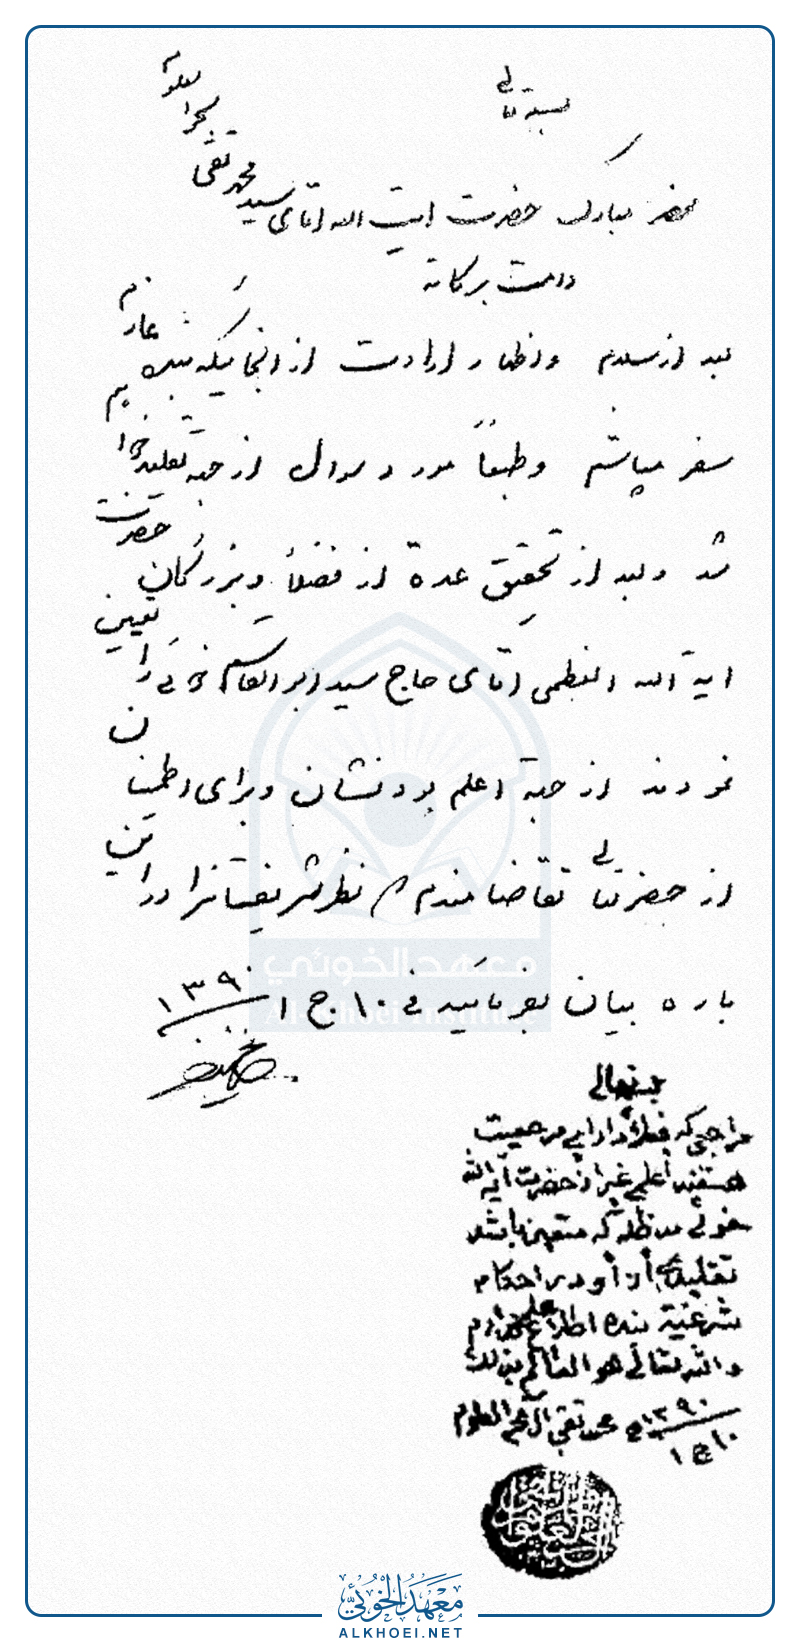 بسمه تعالی
محضر مبارک حضرت ایت الله اقای سید محمد تقی بحر العلوم
دامت برکاته
بعد از سلام و اظهار ارادت از انجائیکه بنده عازم
سفر میباشم و طبعاً مورد سوال از جهة تقلید خواهم
شد و بعد از تحقیق عدة از فضلاء و بزرگان حضرت
ایة الله العظمی اقای حاج سید ابو القاسم خوئی را تعیین
نمودند از جهة اعلم بودنشان و برای اطمینان
از حضرتعالی تقاضا مندم نظر شریفتانرا در این
باره بیان بفرمایید فی ۱۰ ج ۱ ۱۳۹۰
بسمه تعالی
مراجعی که فعلاً دارای مرجعیت
هستند أعلم غیر از حضرت آیة الله
خوئی مد ظله که متعین باشد
تقلید أز أو در احکام
شرعیّة بنده اطلاع ندارم
والله تعالی هو العالم بذلك
محمد تقی آل بحر العلوم
۱۰ ج ۱ ۱۳۹۰
معهد الخوئي
Al-Khoei Institute
معهد الخوئي
ALKHOEI.NET